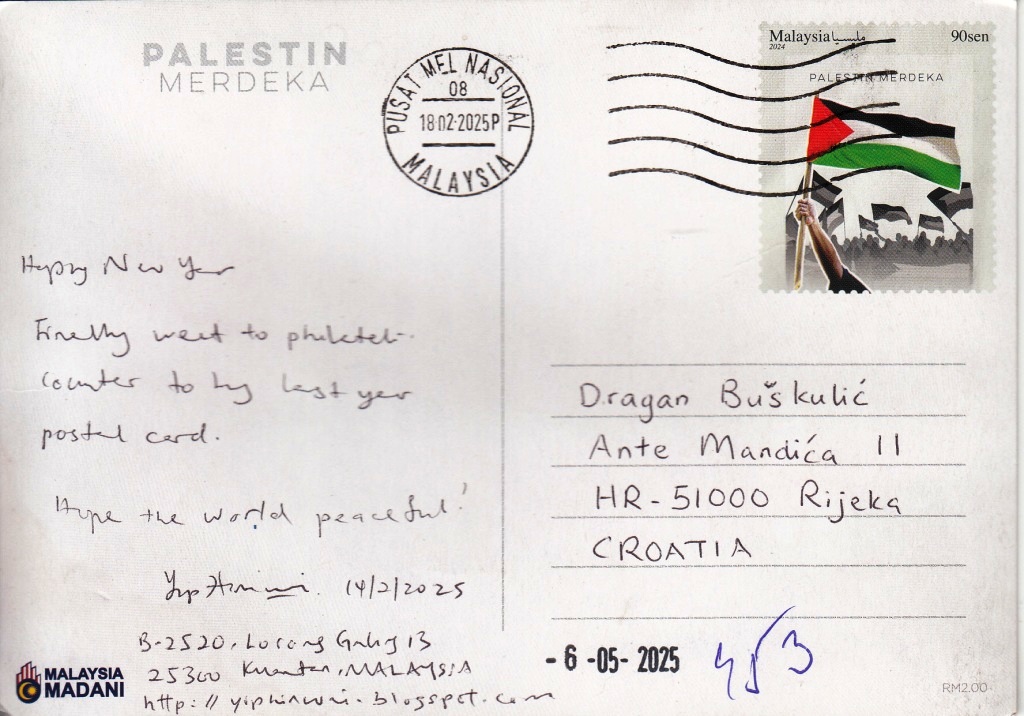 PALESTIN
MERDEKA
PUSAT MEL NASIONAL
08
18 02·2025P
MALAYSIA
Malaysia مليسيا
2024
90sen
PALESTIN MERDEKA
Happy New Year
Finally went to philateli
counter to buy last year
postal card.
Hope the world peaceful!
Dragan Buškulić
Ante Mandića 11
HR-51000 Rijeka
CROATIA
Yip 14/2/2025
B-2520, Lorong 13
25300 Kuantan, MALAYSIA
blogspot.com
MALAYSIA
MADANI
- 6 -05- 2025
453
RM2.00